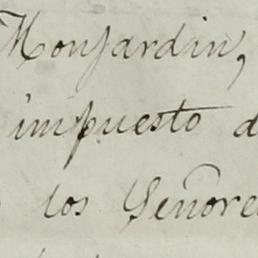 Monjardin,
impuesto d
los Señore